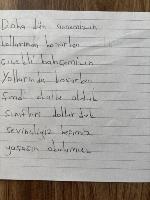 Daha dün annemizin
kollarında koşarken
çiçekli bahçemizin
yollarında koşarken
Şimdi okullu olduk
sınıfları doldurduk
sevinçliyiz hepimiz
yaşasın okulumuz